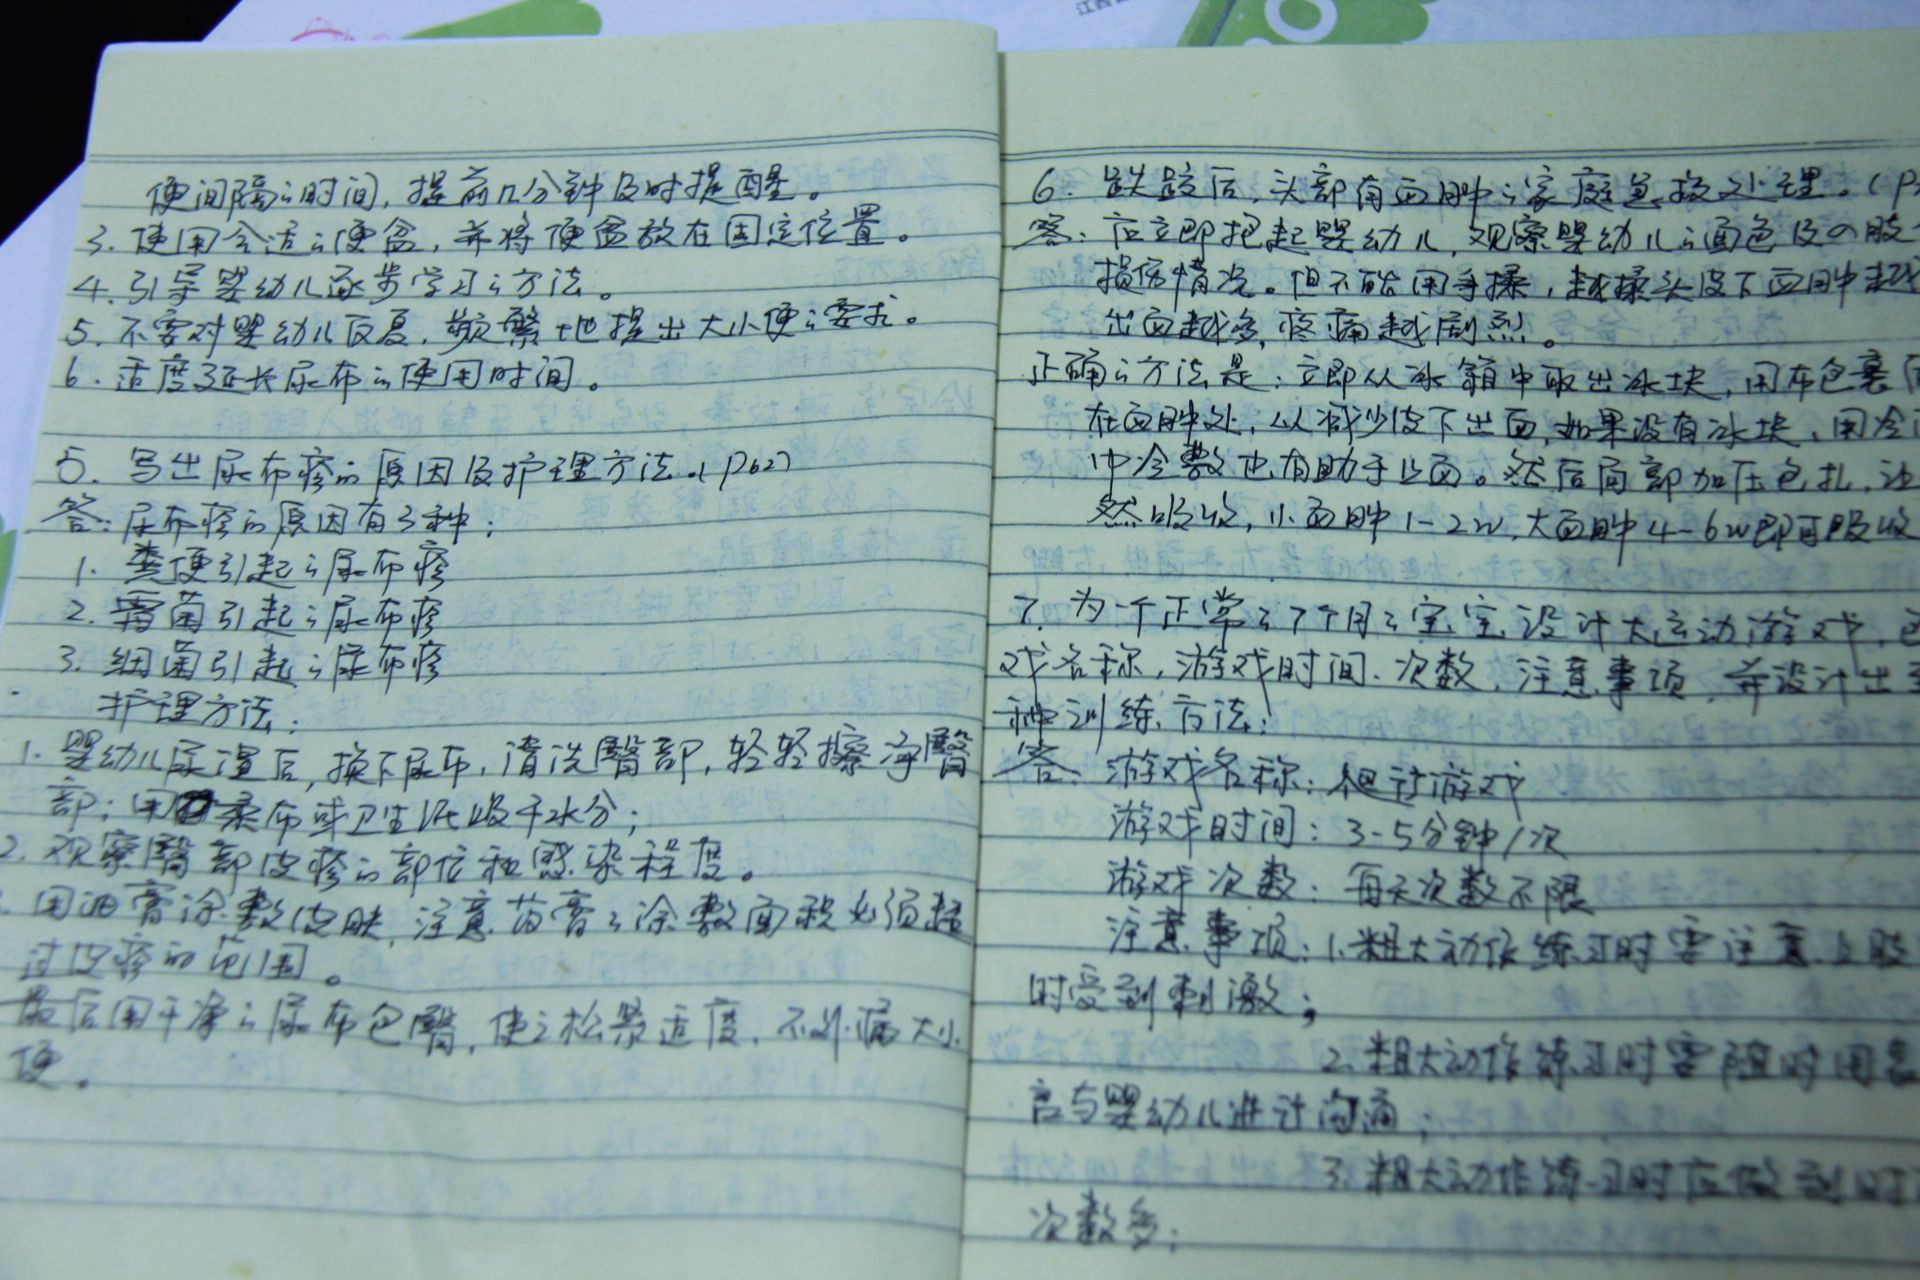 江西
便间隔之时间，提前几分钟及时提醒。
3. 使用合适之便盆，并将便盆放在固定位置。
4. 引导婴幼儿逐步学习之方法。
5. 不要对婴幼儿反复，频繁地提出大小便之要求。
6. 适度延长尿布之使用时间。
5. 写出尿布疹的原因及护理方法。(P62)
答：尿布疹的原因有3种：
1. 粪便引起之尿布疹
2. 霉菌引起之尿布疹
3. 细菌引起之尿布疹
护理方法：
1. 婴幼儿尿湿后，换下尿布，清洗臀部，轻轻擦净臀
部；用柔布或卫生纸吸干水分；
2. 观察臀部皮疹的部位和感染程度。
用油膏涂敷皮肤，注意药膏之涂敷面积必须超
过皮疹的范围。
最后用干净之尿布包臀，使之松紧适度，不外漏大小
便。
6. 跌跤后，头部有血肿之家庭急救处理。(P
答：应立即把起婴幼儿，观察婴幼儿之面色及四肢
损伤情况。但不能用手揉，越揉头皮下血肿越
出血越多，疼痛越剧烈。
正确之方法是：立即从冰箱中取出冰块，用布包裹
在血肿处，以减少皮下出血，如果没有冰块，用冷
中冷敷也有助于止血。然后局部加压包扎，让
然吸收，小血肿1-2w，大血肿4-6w即可吸收
7. 为一个正常之7个月之宝宝设计大运动游戏，
戏名称，游戏时间、次数，注意事项，并设计出
种训练方法：
答：游戏名称：爬行游戏
游戏时间：3-5分钟/次
游戏次数：每天次数不限
注意事项：1. 粗大动作练习时要注意上肢
时受到刺激；
2. 粗大动作练习时要随时用
言与婴幼儿进行沟通；
3. 粗大动作练习时应做到时
次数多；